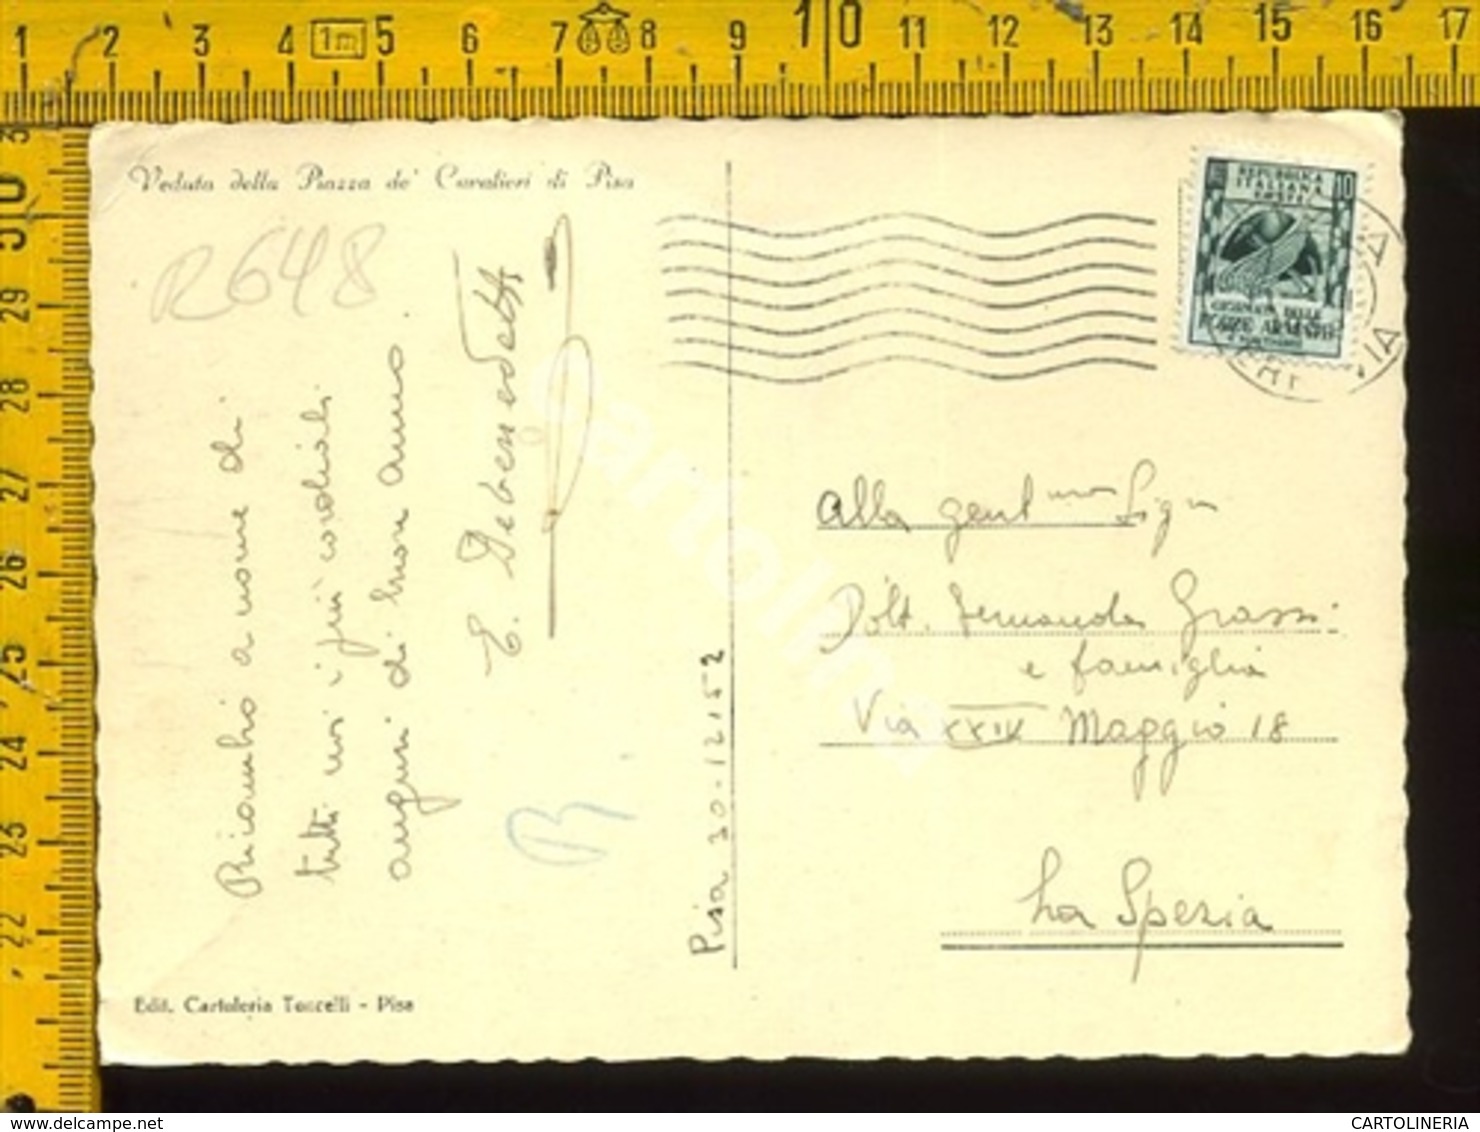 1 2 3 4 1m 5 6 7 8 9 10 11 12 13 14 15 16 17
30
29
28
27
26
25
24
23
22
Veduta della Piazza de' Cavalieri di Pisa
R648
Ricambio a nome di
tutti noi i più cordiali
auguri di buon anno.
E. Debenedetti
Pisa 30.12.52
Edit. Cartoleria Toscelli - Pisa
REPUBBLICA
ITALIANA
POSTE
10
GIORNATA DELLE
FORZE ARMATE
Alla gent.ma Sig.ra
Dott. Fernanda Grassi
e famiglia
Via XXIX Maggio 18
La Spezia
cartolineria
CARTOLINERIA